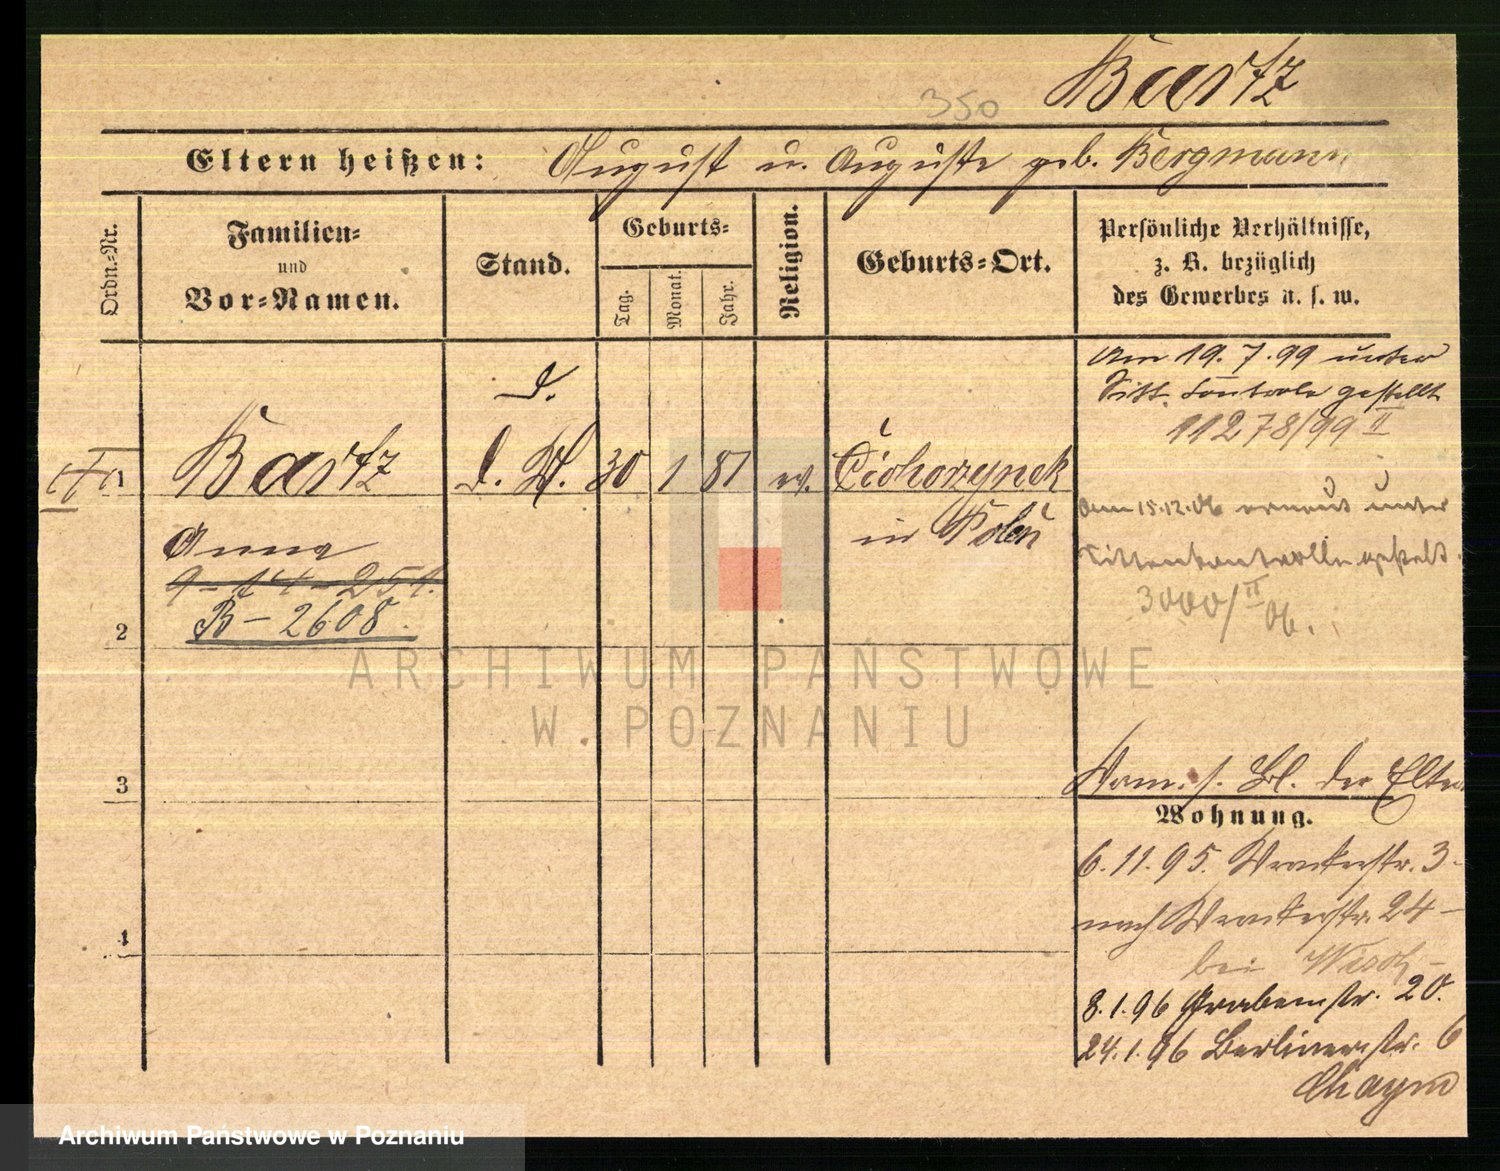 350
Bartz
Eltern heißen: August u. Auguste geb. Bergmann
Ordn.-Nr.
Familien-
und
Vor-Namen.
Stand.
Geburts-
Tag.
Monat.
Jahr.
Religion.
Geburts-Ort.
Persönliche Verhältnisse,
z. B. bezüglich
des Gewerbes u. s. w.
Am 19. 7. 99 unter
Sitt. Controle gestellt
11278/99 II
d.
Bartz d. M. 30 1 81 ev. Ciohorzynek
in Polen
Anna
9-14-251.
B-2608.
am 15.12.06 erneut unter
Sittenkontrolle gestellt.
3000/II 06.
2
3
4
Vorm. s. Bl. der Eltern
Wohnung.
6. 11. 95. 3-
nach 24-
bei
8. 1. 96 Grabenstr. 20.
24. 1. 96 Berlinerstr. 6
Chaym
ARCHIWUM PAŃSTWOWE
W POZNANIU
Archiwum Państwowe w Poznaniu